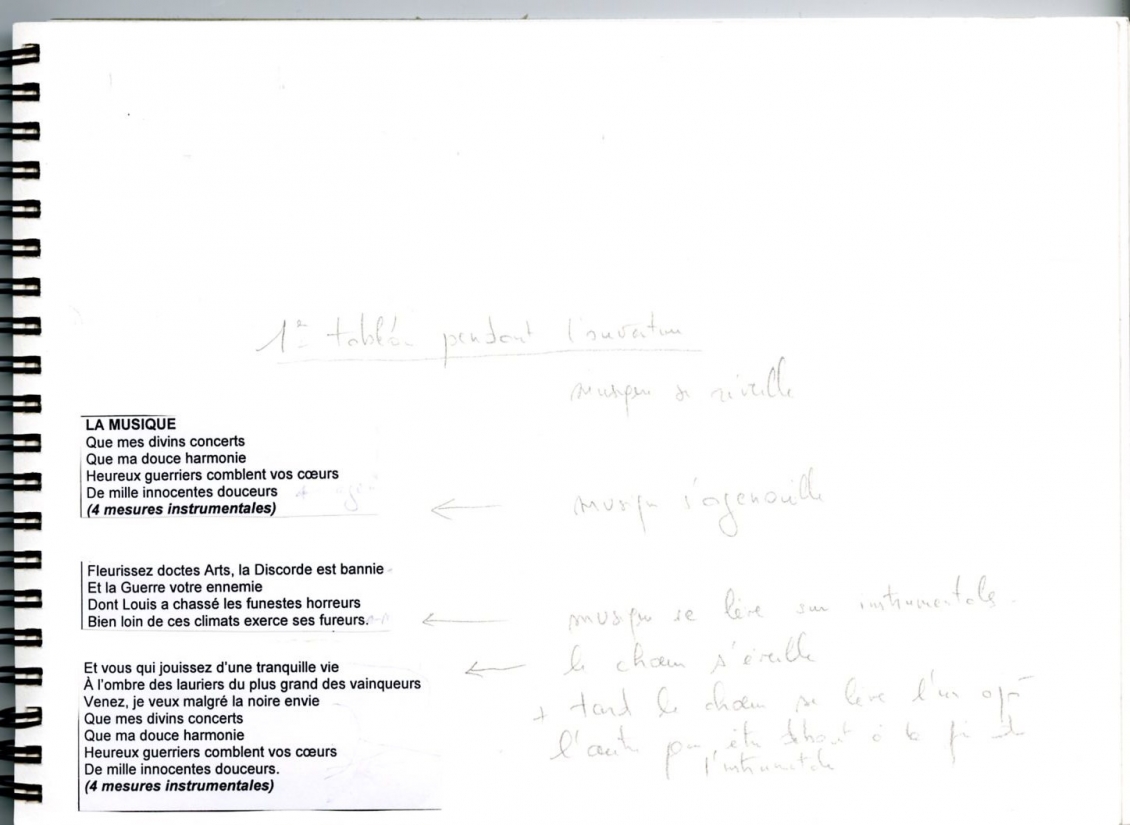 1er tableau pendant l'ouverture
musique se réveille
LA MUSIQUE
Que mes divins concerts
Que ma douce harmonie
Heureux guerriers comblent vos cœurs
De mille innocentes douceurs
(4 mesures instrumentales)
musique s'agenouille
Fleurissez doctes Arts, la Discorde est bannie
Et la Guerre votre ennemie
Dont Louis a chassé les funestes horreurs
Bien loin de ces climats exerce ses fureurs.
musique se lève sur instrumentale.
le chœur s'éveille
Et vous qui jouissez d'une tranquille vie
À l'ombre des lauriers du plus grand des vainqueurs
Venez, je veux malgré la noire envie
Que mes divins concerts
Que ma douce harmonie
Heureux guerriers comblent vos cœurs
De mille innocentes douceurs.
(4 mesures instrumentales)
+ tard le chœur se lève l'un après
l'autre pour être debout à la fin de
l'instrumentale